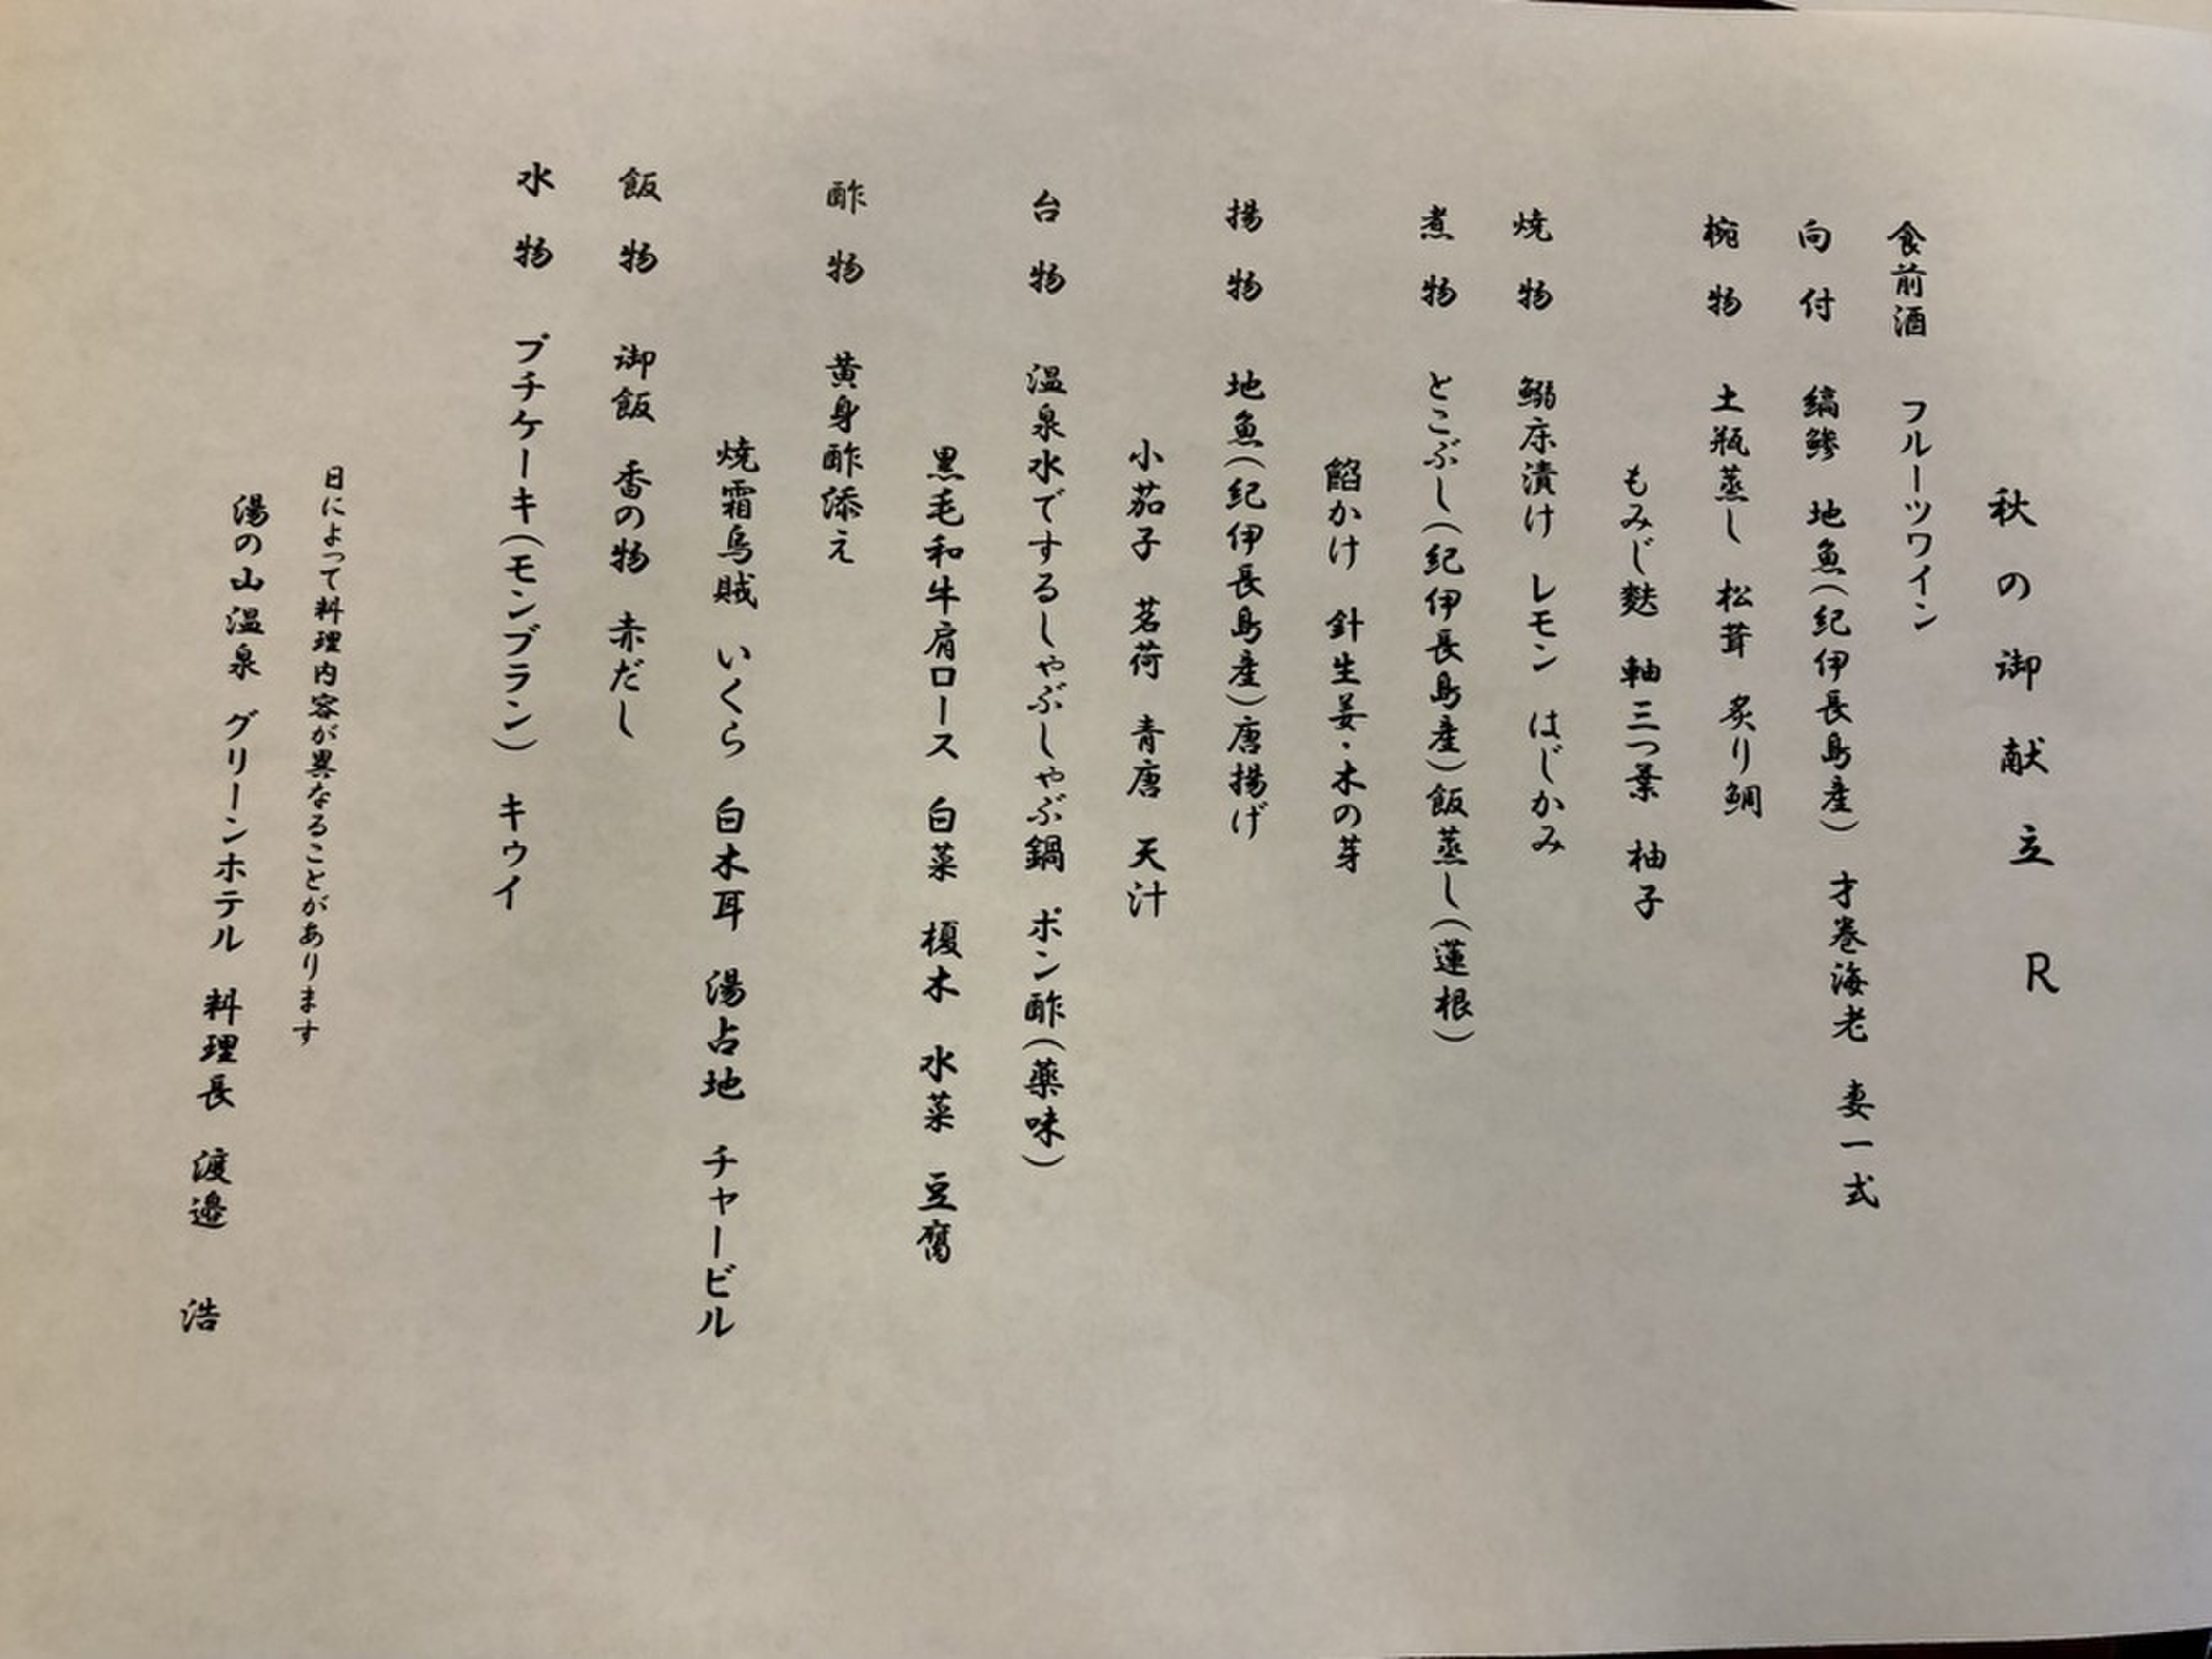 秋の御献立 R
食前酒 フルーツワイン
向付 縞鯵 地魚(紀伊長島産) 才巻海老 妻一式
椀物 土瓶蒸し 松茸 炙り鯛
もみじ麩 軸三つ葉 柚子
焼物 鰯床漬け レモン はじかみ
煮物 とこぶし(紀伊長島産)飯蒸し(蓮根)
餡かけ 針生姜・木の芽
揚物 地魚(紀伊長島産)唐揚げ
小茄子 茗荷 青唐 天汁
台物 温泉水でするしゃぶしゃぶ鍋 ポン酢(薬味)
黒毛和牛肩ロース 白菜 榎木 水菜 豆腐
酢物 黄身酢添え
焼霜烏賊 いくら 白木耳 湯占地 チャービル
飯物 御飯 香の物 赤だし
水物 プチケーキ(モンブラン) キゥイ
日によって料理内容が異なることがあります
湯の山温泉 グリーンホテル 料理長 渡邉 浩